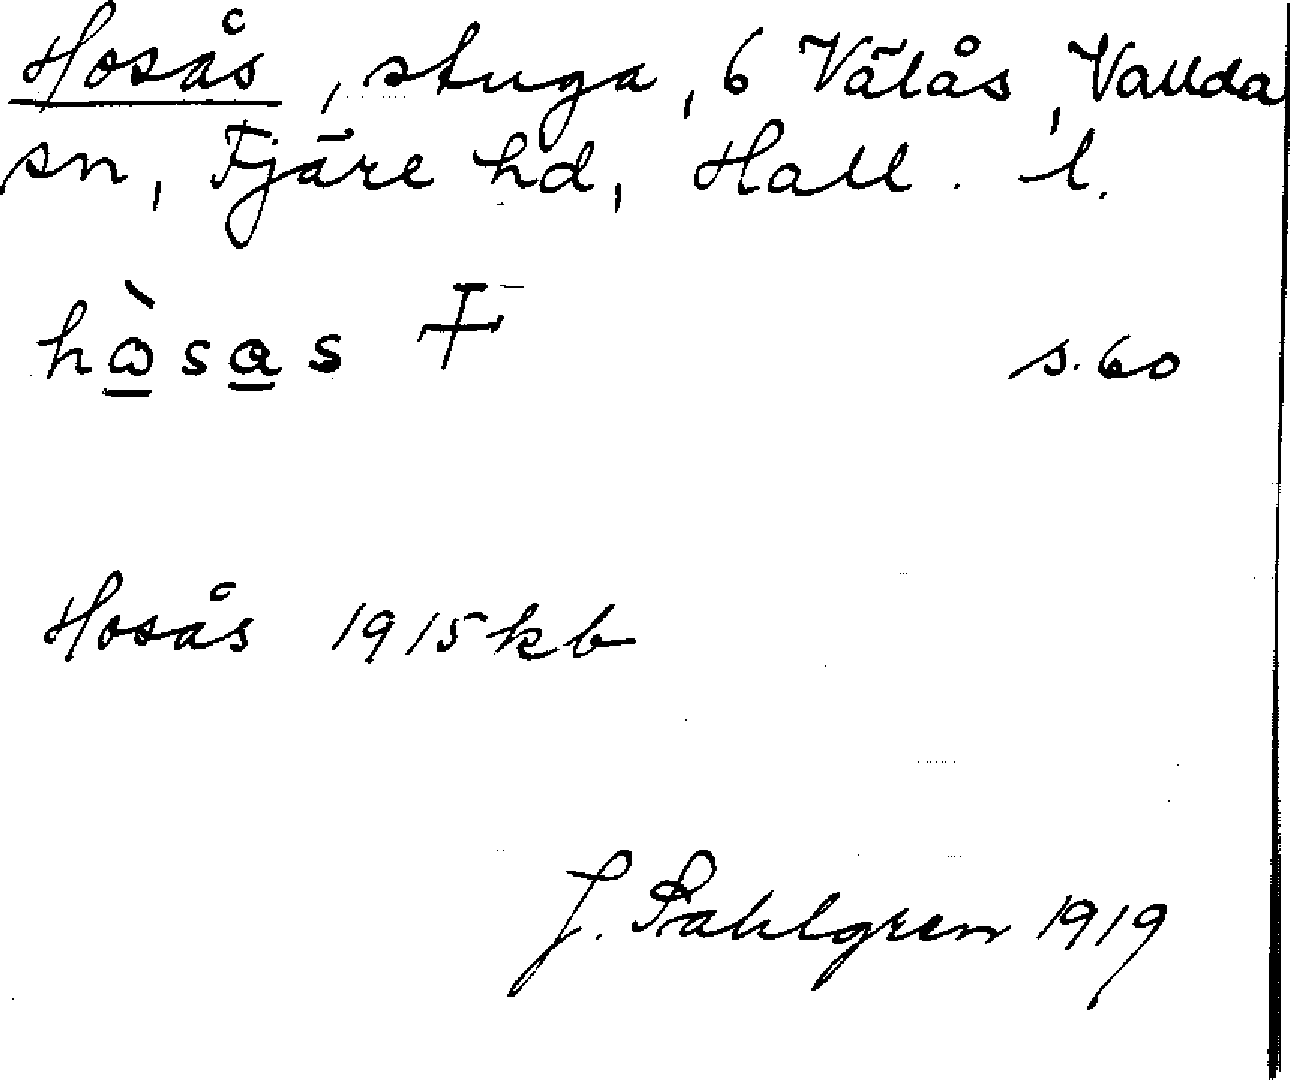 Hosås, stuga, 6 Välås, Vallda
sn, Fjäre hd, Hall. l.
hò̲sa̲s F s. 60
Hosås 1915 kb
J. Sahlgren 1919